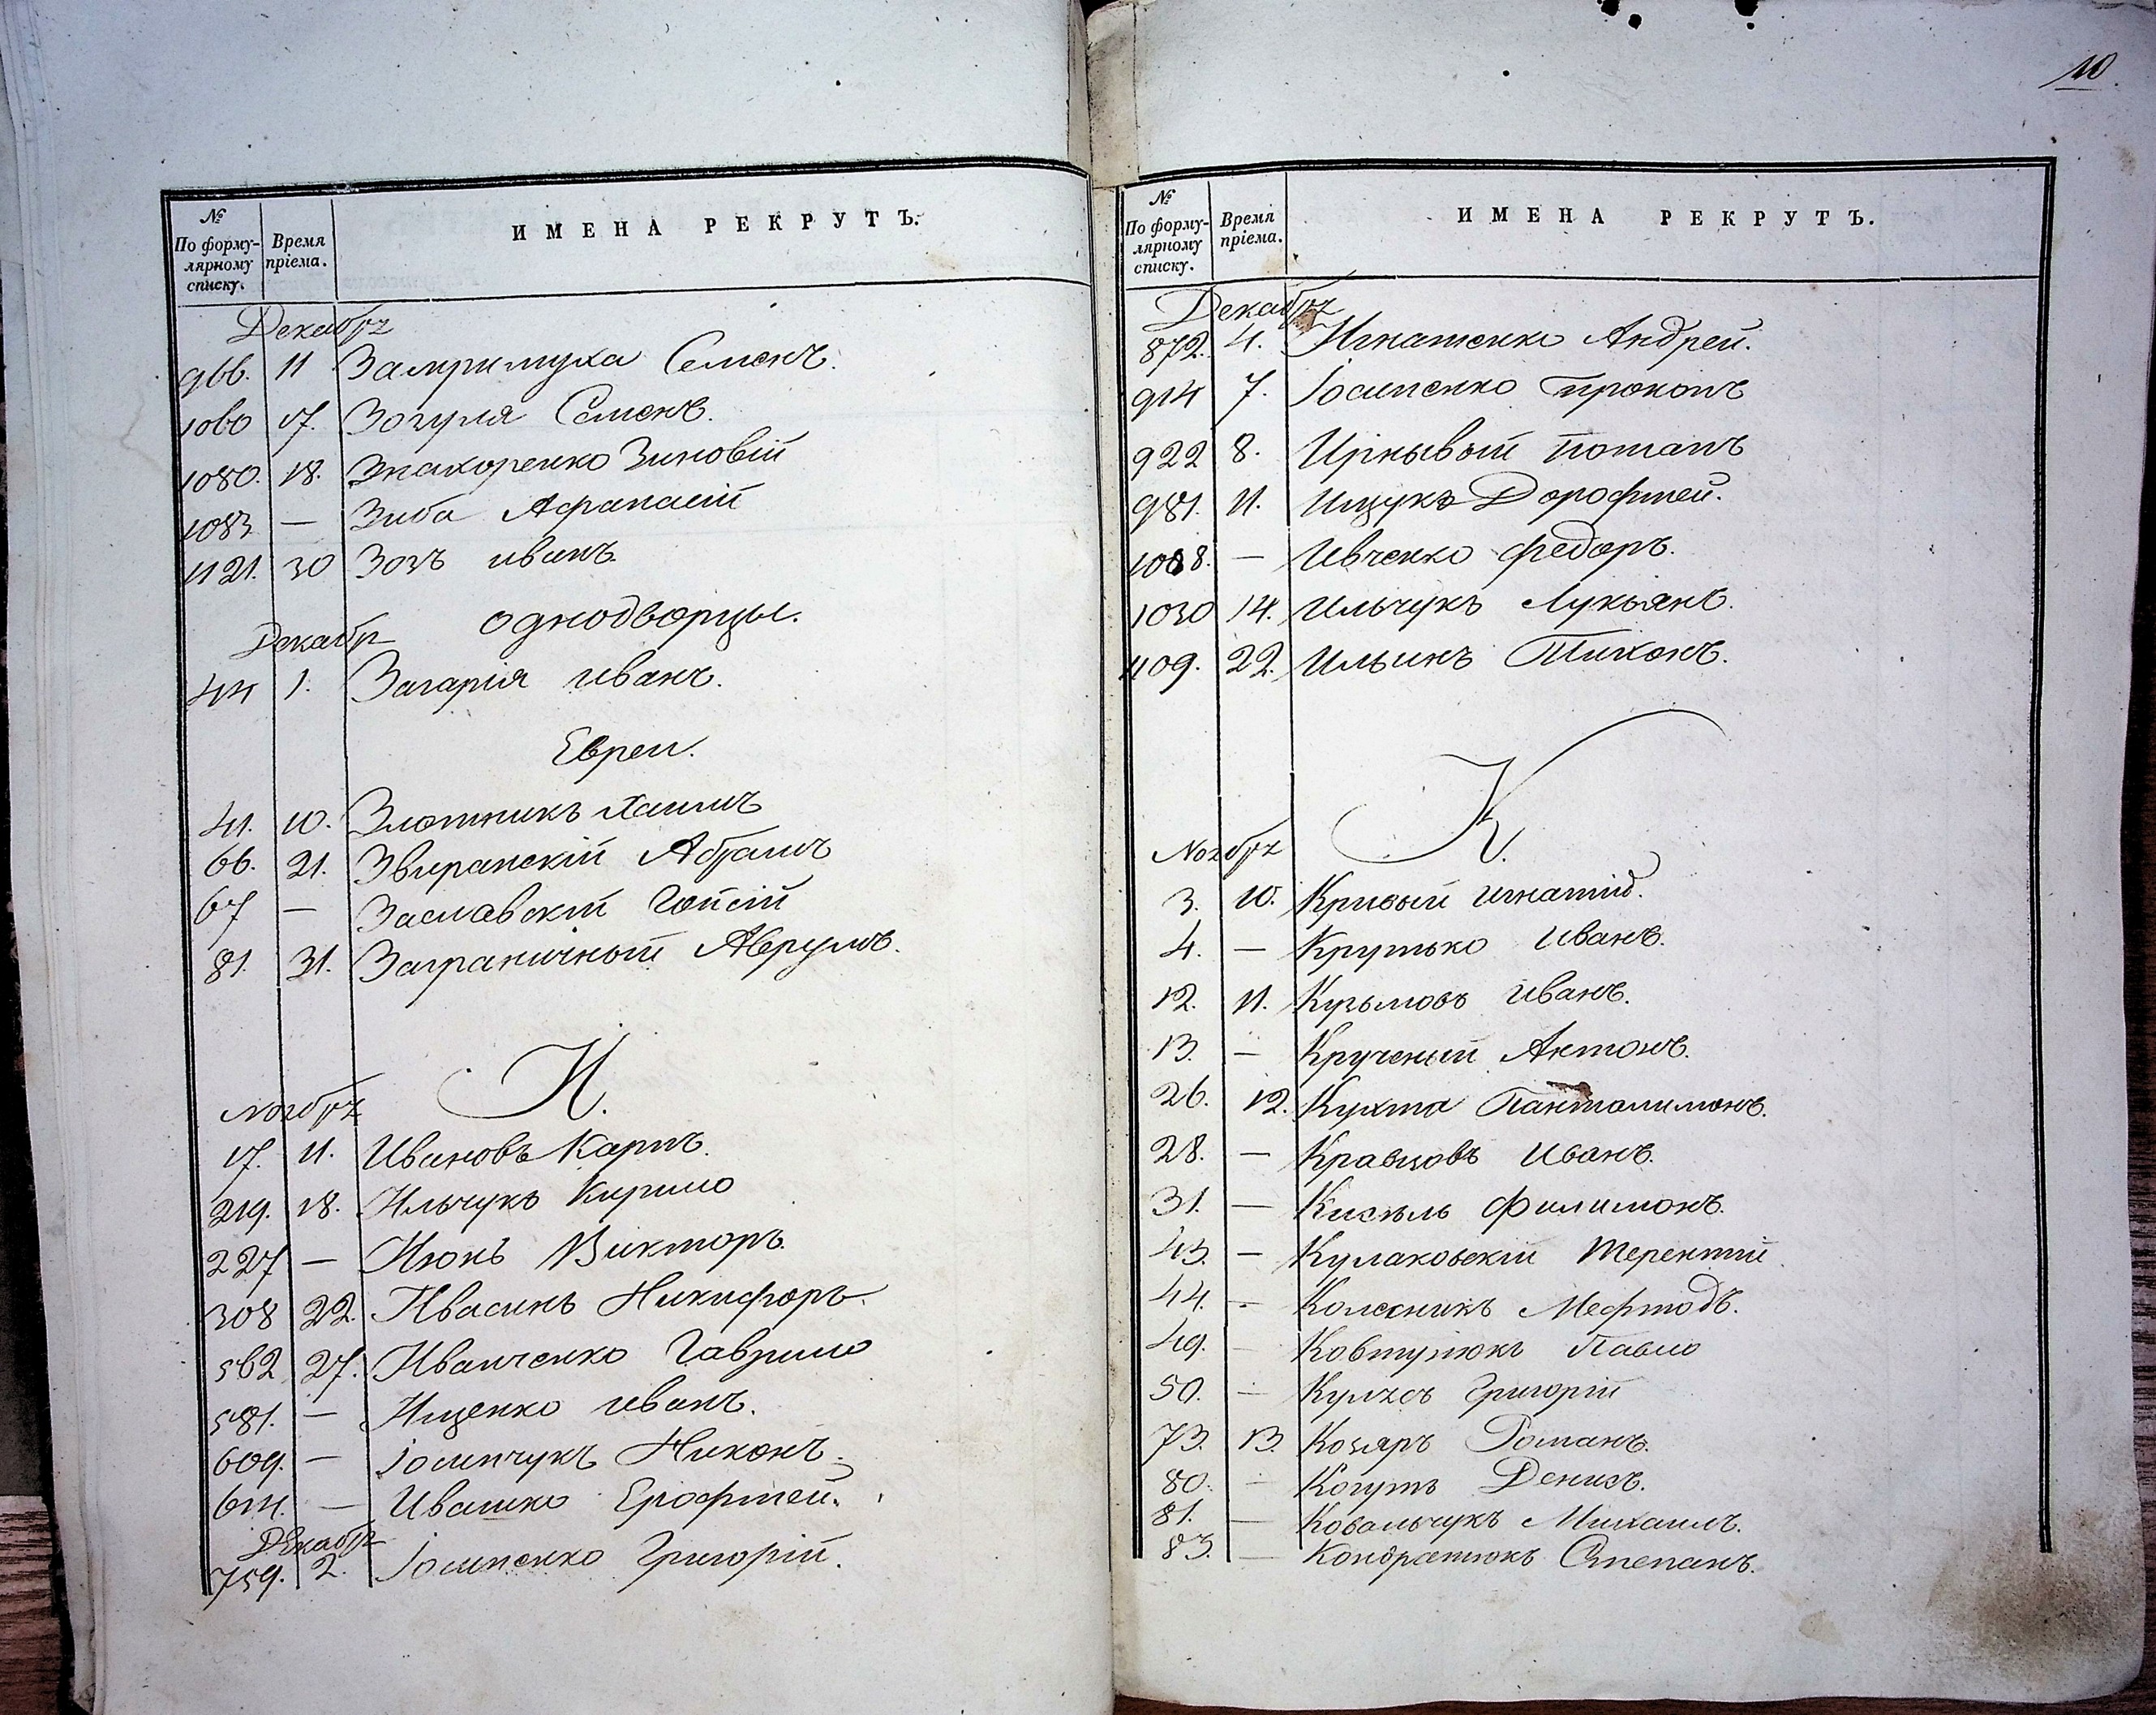 № По формулярному списку. Время пріема. ИМЕНА РЕКРУТЪ.
Декабря
966. 11 Замримуха Семенъ.
1060 17. Зогуля Семенъ.
1080. 18. Знахоренко Зиновій
1083 — Зиба Афанасій
1121. 30 Зозъ иванъ.
Однодворцы.
Декабр
44 1. Загарія иванъ.
Евреи.
41. 10. Злотникъ Хаимъ
66. 21. Звиранскій Абрамъ
67 — Заславскій
81. 31. Заграничный Аврумъ.
И.
Ноября
17. 11. Ивановъ Карпъ.
219. 18. Ильчукъ Кирило
227 — Июнь Викторъ.
308 22. Ивасинъ Никифоръ.
562 27. Иванченко Гаврило
581. — Ищенко иванъ.
609. — Іосипчукъ Никонъ.
614. — Ивашко Ерофтей.
Декабр
759. 2. Іосипенко Григорій.
10
№ По формулярному списку. Время пріема. ИМЕНА РЕКРУТЪ.
Декабря
872. 4. Игнатенко Андрей.
914 7. Іосипенко Прокопъ
922 8. Потапъ
981. 11. Ищукъ Дорофтей.
1008. — Ивченко федоръ.
1030 14. Ильчукъ Лукьянъ.
1109. 22. Ильинъ Тихонъ.
К.
Ноября
3. 10. Кривый игнатій.
4. — Крутько Иванъ.
12. 11. Кузьмовъ иванъ.
13. — Крученый Антонъ.
26. 12. Кухта Пантолимонъ.
28. — Кравцовъ Иванъ.
31. — Кисѣль Филимонъ.
43. — Кулаковскій Терентій
44. — Колесникъ Мефтодъ.
49. — Ковтунюкъ Павло
50. — Григорій
73. 13 Козяръ Романъ.
80. — Когутъ Денисъ.
81. — Ковальчукъ Михаилъ.
83. — Кондратюкъ Степанъ.